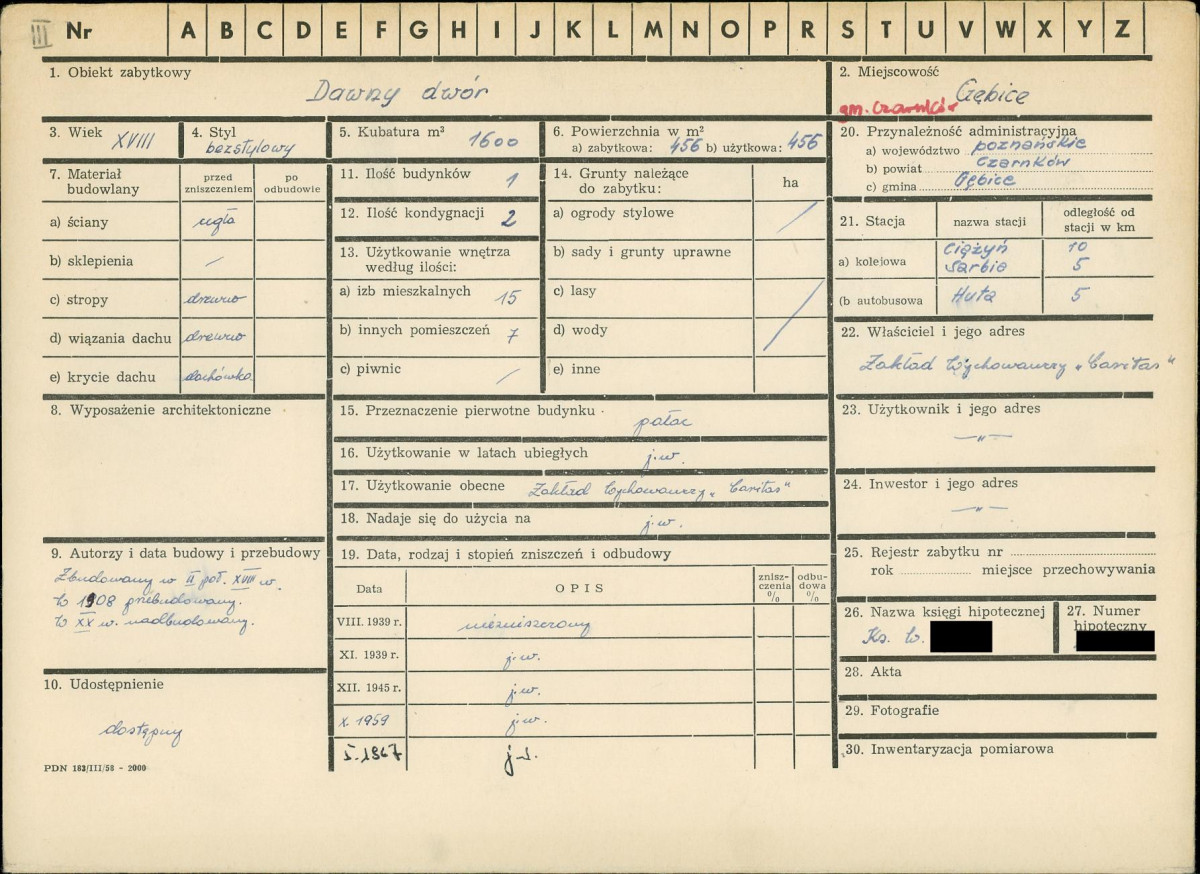 III Nr A B C D E F G H I J K L M N O P R S T U V W X Y Z
1. Obiekt zabytkowy
Dawny dwór
2. Miejscowość
Gębice
gm. Czarnków
3. Wiek
XVIII
4. Styl
bezstylowy
5. Kubatura m³
1600
6. Powierzchnia w m²
a) zabytkowa: 456 b) użytkowa: 456
20. Przynależność administracyjna
a) województwo poznańskie
b) powiat Czarnków
c) gmina Gębice
7. Materiał budowlany
przed zniszczeniem
po odbudowie
a) ściany cegła
b) sklepienia —
c) stropy drewno
d) wiązania dachu drewno
e) krycie dachu dachówka
11. Ilość budynków 1
12. Ilość kondygnacji 2
13. Użytkowanie wnętrza
według ilości:
a) izb mieszkalnych 15
b) innych pomieszczeń 7
c) piwnic /
14. Grunty należące
do zabytku:
ha
a) ogrody stylowe /
b) sady i grunty uprawne
c) lasy /
d) wody
e) inne
21. Stacja
nazwa stacji
odległość od
stacji w km
a) kolejowa
Ciążyń 10
Sarbia 5
(b autobusowa Huta 5
22. Właściciel i jego adres
Zakład Wychowawczy „Caritas"
8. Wyposażenie architektoniczne
15. Przeznaczenie pierwotne budynku
pałac
16. Użytkowanie w latach ubiegłych
j.w.
17. Użytkowanie obecne Zakład Wychowawczy „Caritas"
18. Nadaje się do użycia na j.w.
23. Użytkownik i jego adres
—„—
24. Inwestor i jego adres
—„—
9. Autorzy i data budowy i przebudowy
Zbudowany w II poł. XVIII w.
W 1908 przebudowany.
W XX w. nadbudowany.
19. Data, rodzaj i stopień zniszczeń i odbudowy
Data
OPIS
znisz-
czenia
%
odbu-
dowa
%
VIII. 1939 r. niezniszczony
XI. 1939 r. j.w.
XII. 1945 r. j.w.
X. 1959 j.w.
I. 1967 j.w.
25. Rejestr zabytku nr
rok miejsce przechowywania
26. Nazwa księgi hipotecznej
Ks. W.
27. Numer
hipoteczny
28. Akta
29. Fotografie
30. Inwentaryzacja pomiarowa
10. Udostępnienie
dostępny
PDN 183/III/58 - 2000